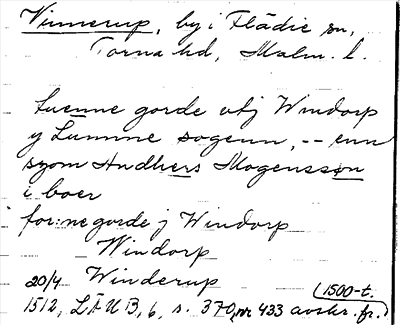 Vinnerup, by i Flädie sn,
Torna hd, Malm. l.
Tuenne gorde vtj Windorp
y Lumme sogenn, -- enn
szom Andhers Mogenssøn
i boer
for:ne gorde j Windorp
Windorp
20/4 Winderup
1512, LÄUB, 6, s. 370, nr 433 avskr. fr.
1500-t.